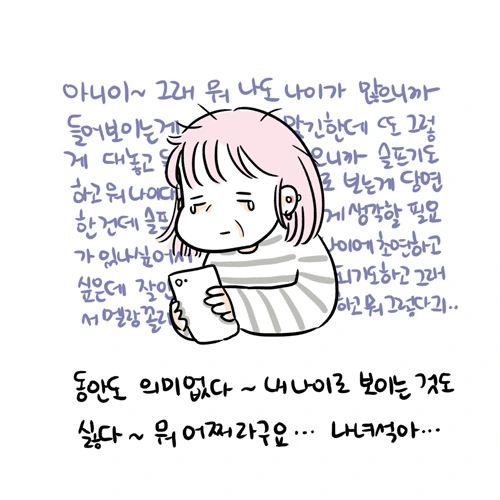 아니이~ 그래 뭐 나도 나이가 많으니까
들어보이는게 맞긴한데 또 그렇
게 대놓고 으니까 슬프기도
하고 뭐 나이대로 보는게 당연
한건데 슬프게 생각할 필요
가 있나싶어서 나이에 초연하고
싶은데 잘안되기도하고 그래
서 멜랑꼴리하고 뭐 그렇다구..
동안도 의미없다 ~ 내 나이로 보이는 것도
싫다 ~ 뭐 어쩌라구요... 나녀석아...